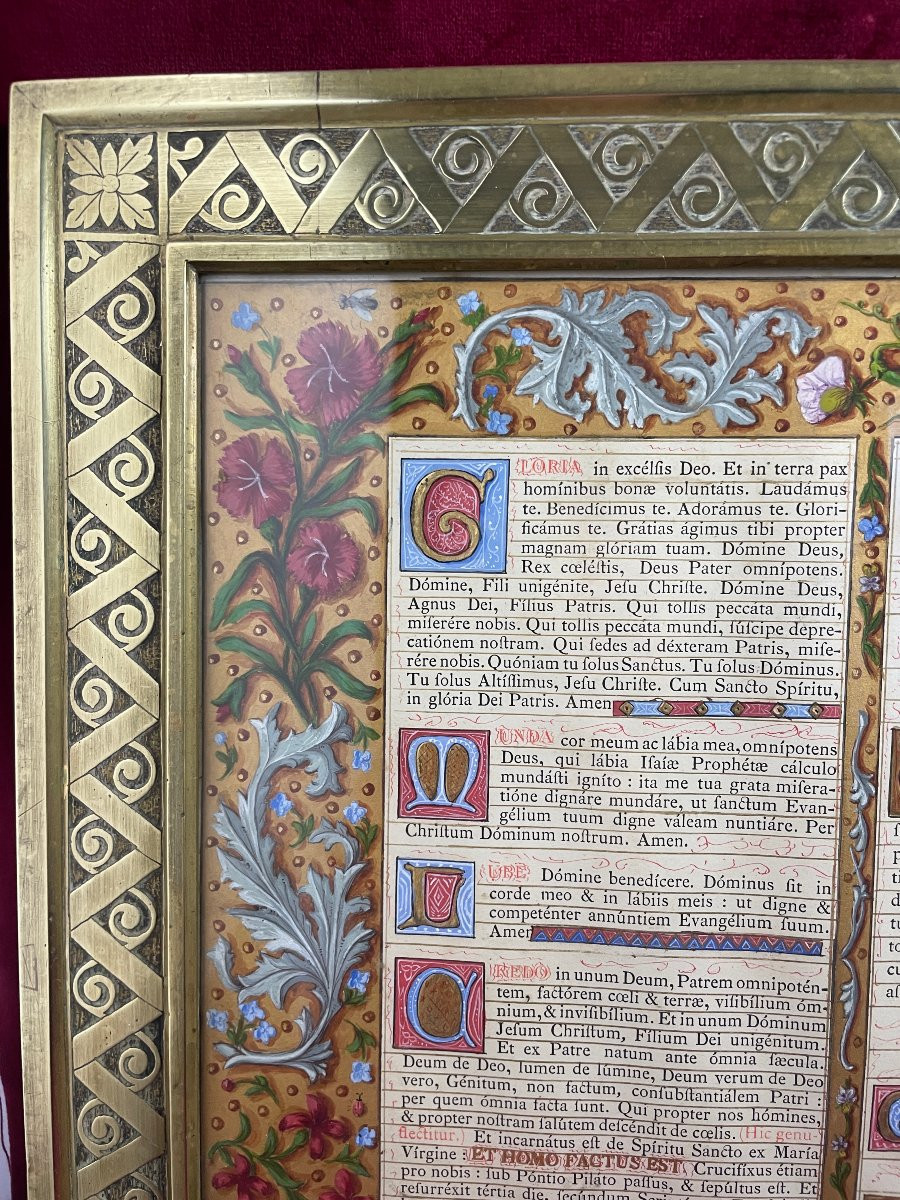 GLORIA in excélſis Deo. Et in terra pax
homínibus bonæ voluntátis. Laudámus
te. Benedícimus te. Adorámus te. Glori-
ficámus te. Grátias ágimus tibi propter
magnam glóriam tuam. Dómine Deus,
Rex cœléſtis, Deus Pater omnípotens.
Dómine, Fili unigénite, Jeſu Chriſte. Dómine Deus,
Agnus Dei, Fílius Patris. Qui tollis peccáta mundi,
miſerére nobis. Qui tollis peccáta mundi, ſúſcipe depre-
catiónem noſtram. Qui ſedes ad déxteram Patris, miſe-
rére nobis. Quóniam tu ſolus Sanctus. Tu ſolus Dóminus.
Tu ſolus Altíſſimus, Jeſu Chriſte. Cum Sancto Spíritu,
in glória Dei Patris. Amen
MUNDA cor meum ac lábia mea, omnípotens
Deus, qui lábia Iſaíæ Prophétæ cálculo
mundáſti igníto : ita me tua grata miſera-
tióne dignáre mundáre, ut ſanctum Evan-
gélium tuum digne váleam nuntiáre. Per
Chriſtum Dóminum noſtrum. Amen.
JUBE Dómine benedícere. Dóminus ſit in
corde meo & in lábiis meis : ut digne &
competénter annúntiem Evangélium ſuum.
Amen
CREDO in unum Deum, Patrem omnipotén-
tem, factórem cœli & terræ, viſibílium óm-
nium, & inviſibílium. Et in unum Dóminum
Jeſum Chriſtum, Fílium Dei unigénitum.
Et ex Patre natum ante ómnia ſæcula.
Deum de Deo, lumen de lúmine, Deum verum de Deo
vero, Génitum, non factum, conſubſtantiálem Patri :
per quem ómnia facta ſunt. Qui propter nos hómines,
& propter noſtram ſalútem deſcéndit de cœlis. (Hic genu-
flectitur.) Et incarnátus eſt de Spíritu Sancto ex María
Vírgine : ET HOMO FACTUS EST. Crucifíxus étiam
pro nobis : ſub Póntio Piláto paſſus, & ſepúltus eſt. Et
reſurréxit tértia die, ſecúndum